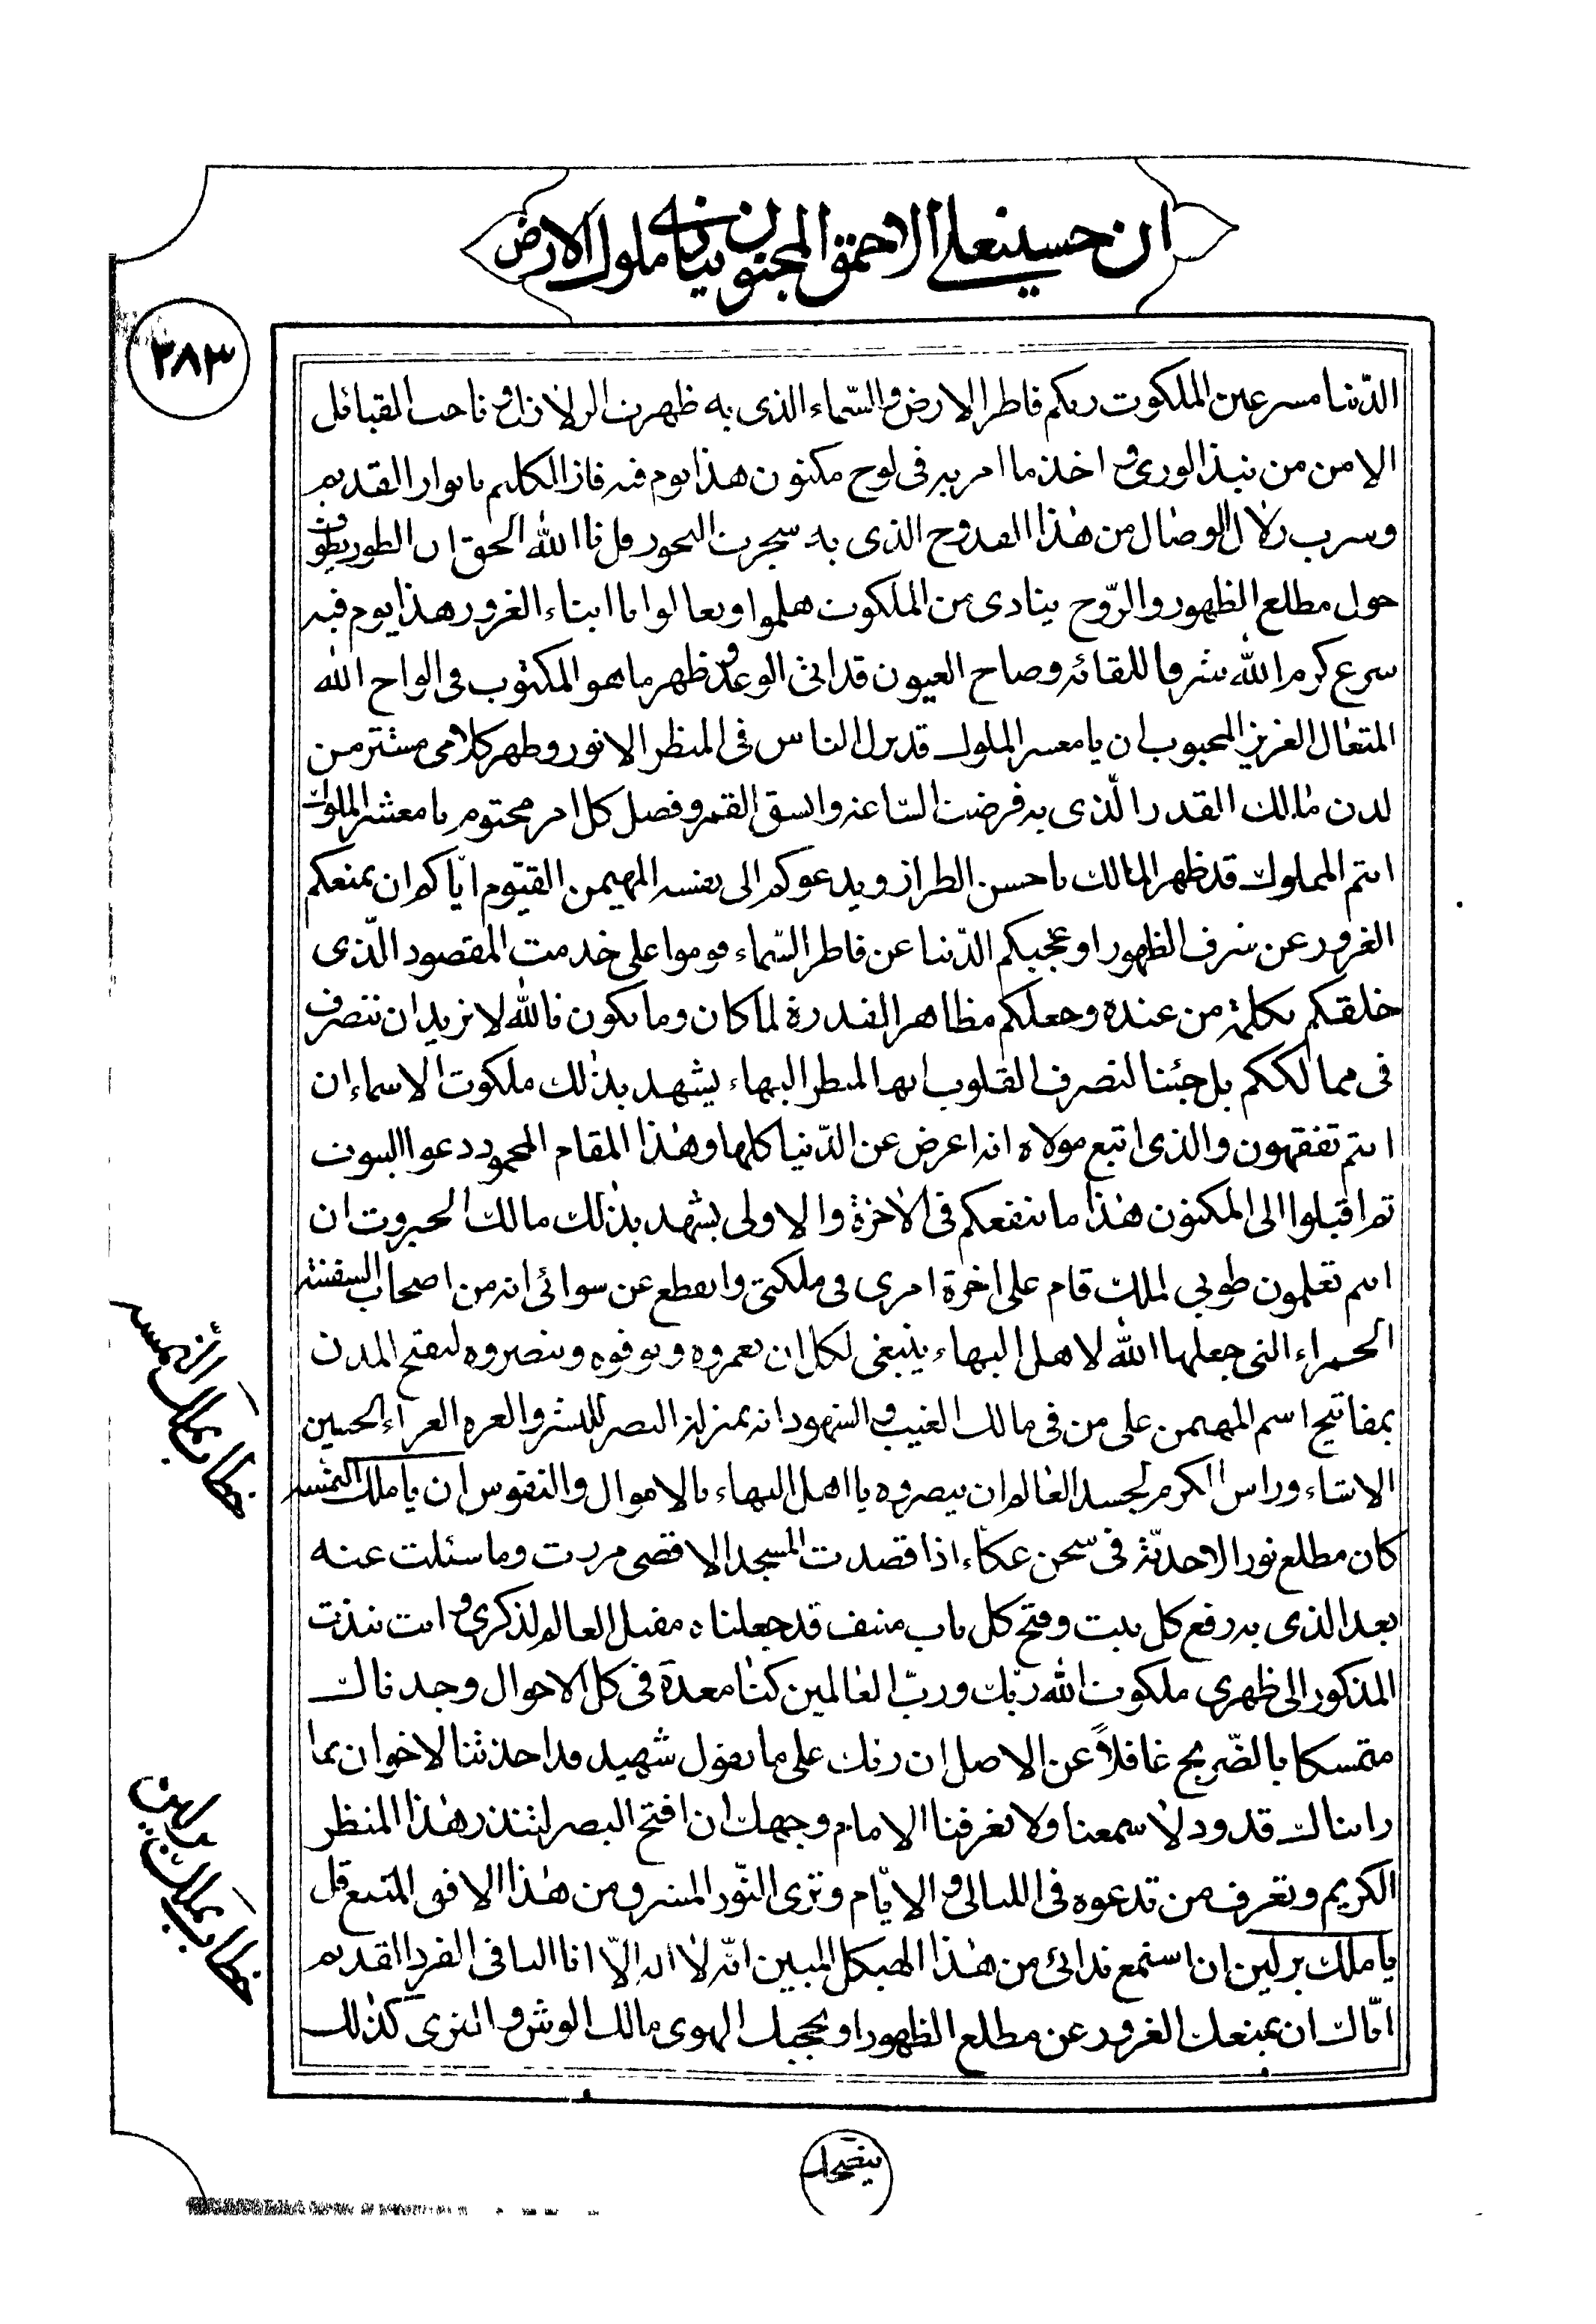 ان حسینعلی الاحمق المجنون ینادی ملوك الارض
۲۸۳
الدّنیا مسرعین الملکوت ربکم فاطر الارض و السّماء الذی به ظهرت الزلازل و ناحت القبائل
الا من من نبذ الوری و اخذ ما امر به فی لوح مکنون هذا یوم فیه فاز الکلیم بانوار القدیم
وسرب زلال الوصال من هٰذا القدوح الذی به سجرت البحور قل تاالله الحق ان الطور یطوف
حول مطلع الظهور والرّوح ینادی من الملکوت هلموا وتعالوا یا ابناء الغرور هذا یوم فیه
سرع کرم الله شوقا للقائه وصاح العیون قد اتی الوعد و ظهر ما هو المکتوب فی الواح الله
المتعال العزیز المحبوب ان یا معسر الملوك قد نزل الناس فی المنظر الانور وظهر کلامی مستتر من
لدن مالك القدر الّذی به فرضت السّاعة وانسق القمر و فصل کل امر محتوم یا معشر الملوك
انتم المملوك قد ظهر المالك باحسن الطراز ویدعوکم الی نفسه المهیمن القیّوم ایّاکم ان یمنعکم
الغرور عن شرف الظهور او یحجبکم الدّنیا عن فاطر السّماء قوموا علی خدمت المقصود الّذی
خلقکم بکلمة من عنده وجعلکم مظاهر القدرة لما کان وما یکون تالله لا نرید ان نتصرف
فی ممالککم بل جئنا لنصرف القلوب انها لمنظر البهاء یشهد بذلك ملکوت الاسماء ان
انتم تفقهون والذی اتبع مولاه انه اعرض عن الدّنیا کلها وهٰذا المقام المحمود دعوا البیوت
ثم اقبلوا الی الملکوت هٰذا ما ینفعکم فی الاخرة والاولی یشهد بذٰلك مالك الجبروت ان
انتم تعلمون طوبی لملك قام علی اخرة امری فی مملکتی وانقطع عن سوائی انه من اصحاب السفینة
الحمراء التی جعلها الله لاهل البهاء ینبغی لکل ان یعزروه ویوقروه وینصروه لیفتح المدن
بمفاتیح اسم المهیمن علی من فی ممالك الغیب و الشهود انه بمنزلة البصر للبشر والغرة الغراء لجبین
الانشاء وراس الکرم لجسد العالم ان ینصروه یا اهل البهاء بالاموال والنفوس ان یا ملك النمسه
کان مطلع نور الاحدیّة فی سجن عکّاء اذا قصدت المسجد الاقصی مررت وما سئلت عنه
بعد الذی به رفع کل بیت وفتح کل باب منیف قد جعلناه مقبل العالم لذکری و انت نبذت
المذکور الی ظهری ملکوت الله ربّك وربّ العالمین کنّا معك فی کل الاحوال وجدناك
متمسکا بالضّریح غافلاً عن الاصل ان ربك علی ما یقول شهید قد اخذتنا الاخوان بما
رایناك قد ودلا سمعنا ولا تعرفنا الامام وجهك ان افتح البصر لتنذر هٰذا المنظر
الکریم وتعرف من تدعوه فی اللیالی و الایّام وتری النّور المشرق من هٰذا الافق المنیع قل
یا ملك برلین ان استمع ندائی من هٰذا الهیکل المبین انّه لا اله الّا انا الباقی الفرد القدیم
ایّاك ان یمنعك الغرور عن مطلع الظهور او یحجبك الهوی مالك العرش و الثری کذٰلك
خطاب بملك النمسه
خطاب بملك برلین
ینصحك